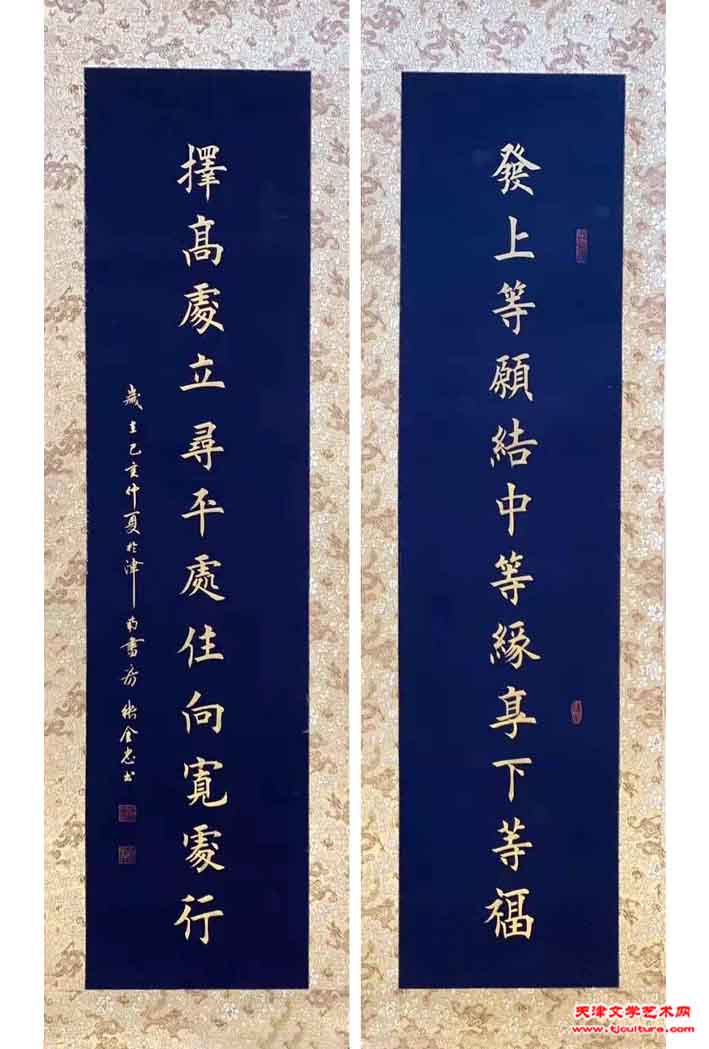 發上等願結中等緣享下等福
擇高處立尋平處住向寬處行
歲在己亥仲夏於津南書齋張金忠書
天津文学艺术网
www.tjculture.com